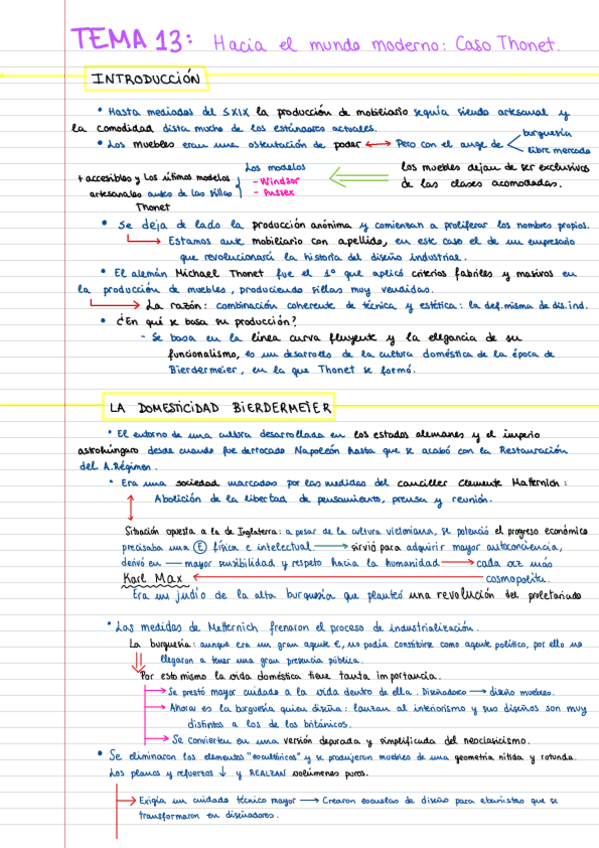 TEMA 13: Hacia el mundo moderno: Caso Thonet.
INTRODUCCIÓN
• Hasta mediados del SXIX la producción de mobiliario seguía siendo artesanal y
la comodidad dista mucho de los estándares actuales.
• Los muebles eran una ostentación de poder ↔ Pero con el auge de < burguesía
libre mercado
+ accesibles y los últimos modelos
artesanales antes de las sillas
Thonet
Los modelos
- Windsor
- Sussex
los muebles dejan de ser exclusivos
de las clases acomodadas.
• Se deja de lado la producción anónima y comienzan a proliferar los nombres propios.
→ Estamos ante mobiliario con apellido, en este caso el de un empresario
que revolucionará la historia del diseño industrial.
• El alemán Michael Thonet fue el 1º que aplicó criterios fabriles y masivos en
la producción de muebles, produciendo sillas muy vendidas.
→ La razón: combinación coherente de técnica y estética: la def.misma de dis.ind.
• ¿En qué se basa su producción?
- Se basa en la línea curva fluyente y la elegancia de su
funcionalismo, es un desarrollo de la cultura doméstica de la época de
Bierdermeier, en la que Thonet se formó.
LA DOMESTICIDAD BIERDERMEIER
• El entorno de una cultura desarrollada en los estados alemanes y el imperio
astrohúngaro desde cuando fue derrocado Napoleón hasta que se acabó con la Restauración
del A.Régimen.
• Era una sociedad marcadas por las medidas del canciller Clemente Matternich:
Abolición de la libertad de pensamiento, prensa y reunión.
Situación opuesta a la de Inglaterra: a pesar de la cultura victoriana, se potenció el progreso económico
precisaba una (E) física e intelectual → sirvió para adquirir mayor autoconciencia,
derivó en → mayor sensibilidad y respeto hacia la humanidad → cada vez más
cosmopolita.
Karl Max
Era un judío de la alta burguesía que planteó una revolución del proletariado
• Las medidas de Metternich frenaron el proceso de industrialización.
La burguesía: aunque era un gran agente €, no podía constituirse como agente político, por ello no
llegaron a tener una gran presencia pública.
Por esto mismo la vida doméstica tiene tanta importancia.
→ Se prestó mayor cuidado a la vida dentro de ella. Diseñadores → diseño muebles.
→ Ahora es la burguesía quien diseña: lanzan al interiorismo y sus diseños son muy
distintos a los de los británicos.
→ Se convierten en una versión depurada y simplificada del neoclasicismo.
• Se eliminaron los elementos "escultóricos" y se produjeron muebles de una geometría nítida y rotunda.
Los planos y refuerzos ↓ y REALZAN volúmenes puros.
→ Exigía un cuidado técnico mayor → Crearon escuelas de diseño para ebanistas que se
transformaron en diseñadores.